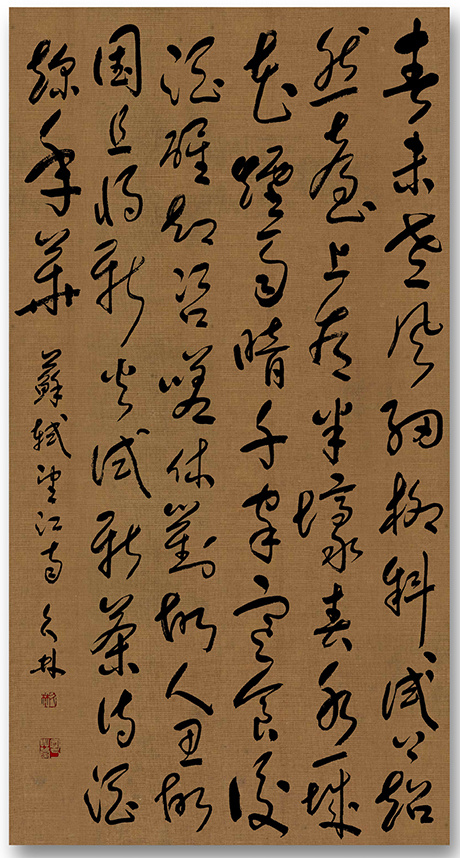 春未老風細柳斜試上超
然臺上看半壕春水一城
花煙雨暗千家寒食後
酒醒卻咨嗟休對故人思故
國且將新火試新茶詩酒
趁年華 蘇軾望江南